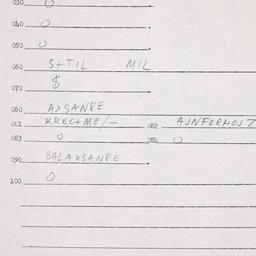 030 0
040 0
050 0
060 S+TIL MIL
070 $
080 AXSANRE
081 KREC+ME/- 082 AJNFORMOSZ
083 0 084 0
090 BALAXSANRE
100 0